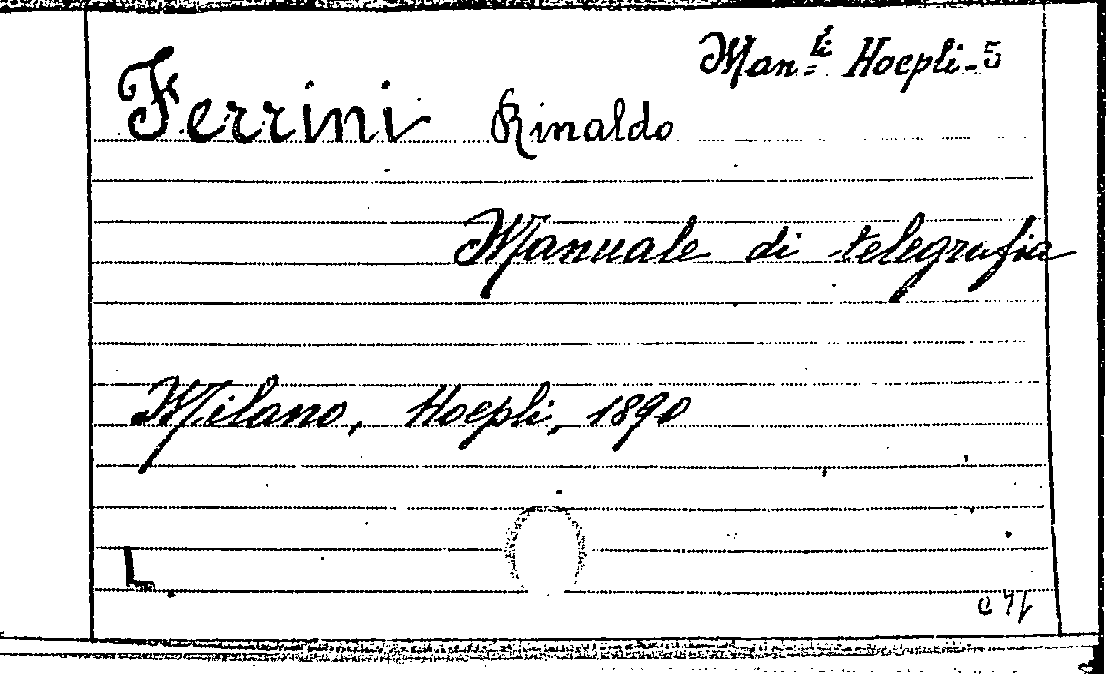 Man.li Hoepli-5
Ferrini Rinaldo
Manuale di telegrafia
Milano, Hoepli, 1890
L